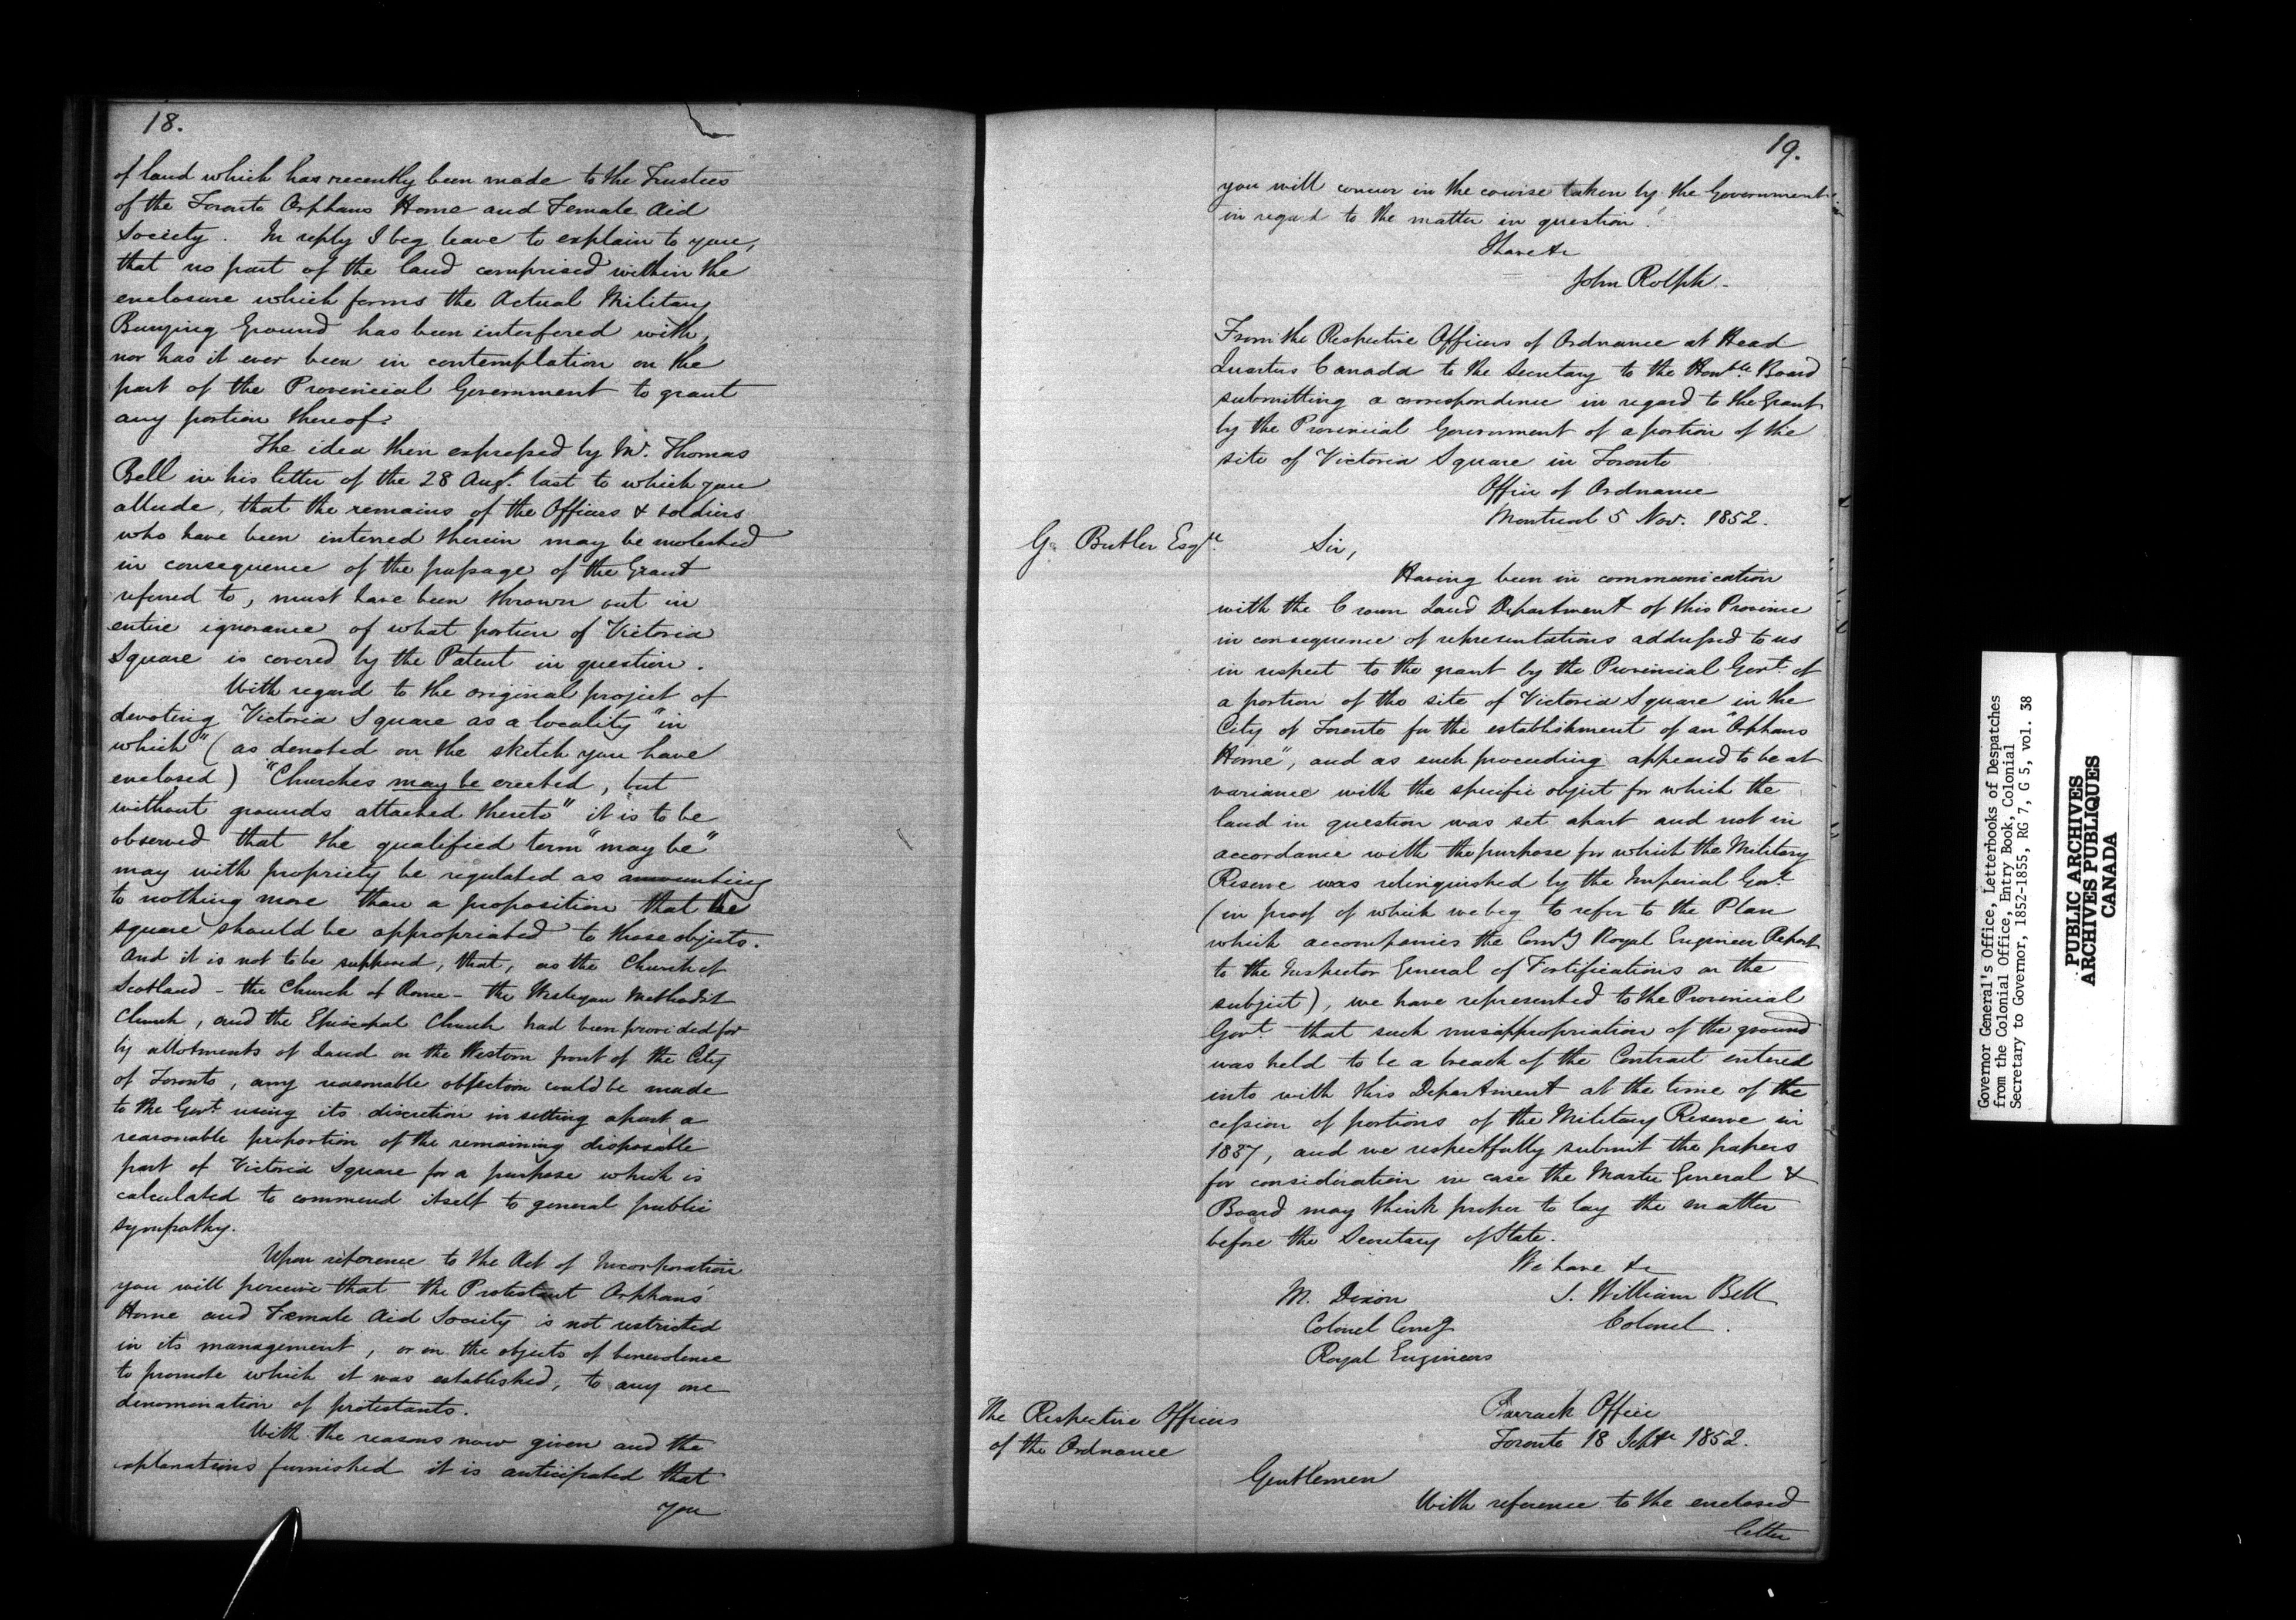 18.
of land which has recently been made to the Trustees
of the Toronto Orphans Home and Female Aid
Society. In reply I beg leave to explain to you,
that no part of the land comprised within the
enclosure which forms the Actual Military
Burying Ground has been interfered with,
nor has it ever been in contemplation on the
part of the Provincial Government to grant
any portion thereof.
The idea then expressed by Mr. Thomas
Bell in his letter of the 28 Augt. last to which you
allude, that the remains of the Officers & soldiers
who have been interred therein may be molested
in consequence of the passage of the Grant
referred to, must have been thrown out in
entire ignorance of what portion of Victoria
Square is covered by the Patent in question.
With regard to the original project of
devoting Victoria Square as a locality "in
which" (as denoted on the sketch you have
enclosed) "Churches may be erected, but
without grounds attached thereto" it is to be
observed that the qualified term "may be"
may with propriety be regulated as amounting
to nothing more than a proposition that the
square should be appropriated to those objects.
And it is not to be supposed, that, as the Church of
Scotland - the Church of Rome - the Wesleyan Methodist
Church, and the Episcopal Church had been provided for
by allotments of Land on the Western front of the City
of Toronto, any reasonable objection could be made
to the Govt. using its discretion in setting apart a
reasonable proportion of the remaining disposable
part of Victoria Square for a purpose which is
calculated to commend itself to general public
sympathy.
Upon reference to the Act of Incorporation
you will perceive that the Protestant Orphans'
Home and Female Aid Society is not restricted
in its management, or in the objects of benevolence
to promote which it was established, to any one
denomination of protestants.
With the reasons now given and the
explanations furnished it is anticipated that
you
19.
you will concur in the course taken by the Government
in regard to the matter in question.
I have &c
John Rolph -
From the Respective Officers of Ordnance at Head
Quarters Canada to the Secretary to the Honble. Board
submitting a correspondence in regard to the Grant
by the Provincial Government of a portion of the
site of Victoria Square in Toronto
Office of Ordnance
Montreal 5 Nov. 1852.
G. Butler Esqre.
Sir,
Having been in communication
with the Crown Land Department of this Province
in consequence of representations addressed to us
in respect to the grant by the Provincial Govt. of
a portion of the site of Victoria Square in the
City of Toronto for the establishment of an "Orphans
Home", and as such proceeding appeared to be at
variance with the specific object for which the
land in question was set apart and not in
accordance with the purpose for which the Military
Reserve was relinquished by the Imperial Govt.
(in proof of which we beg to refer to the Plan
which accompanies the Comg Royal Engineer Report
to the Inspector General of Fortifications on the
subject), we have represented to the Provincial
Govt. that such misappropriation of the ground
was held to be a breach of the Contract entered
into with this Department at the time of the
cession of portions of the Military Reserve in
1837, and we respectfully submit the papers
for consideration in case the Master General &
Board may think proper to lay the matter
before the Secretary of State.
We have &c
M. Dixon
Colonel Comg
Royal Engineers
J. William Bell
Colonel.
The Respective Officers
of the Ordnance
Barrack Office
Toronto 18 Septr. 1852.
Gentlemen
With reference to the enclosed
letter
Governor General's Office, Letterbooks of Despatches
from the Colonial Office, Entry Book, Colonial
Secretary to Governor, 1852-1855, RG 7, G 5, vol. 38
PUBLIC ARCHIVES
ARCHIVES PUBLIQUES
CANADA